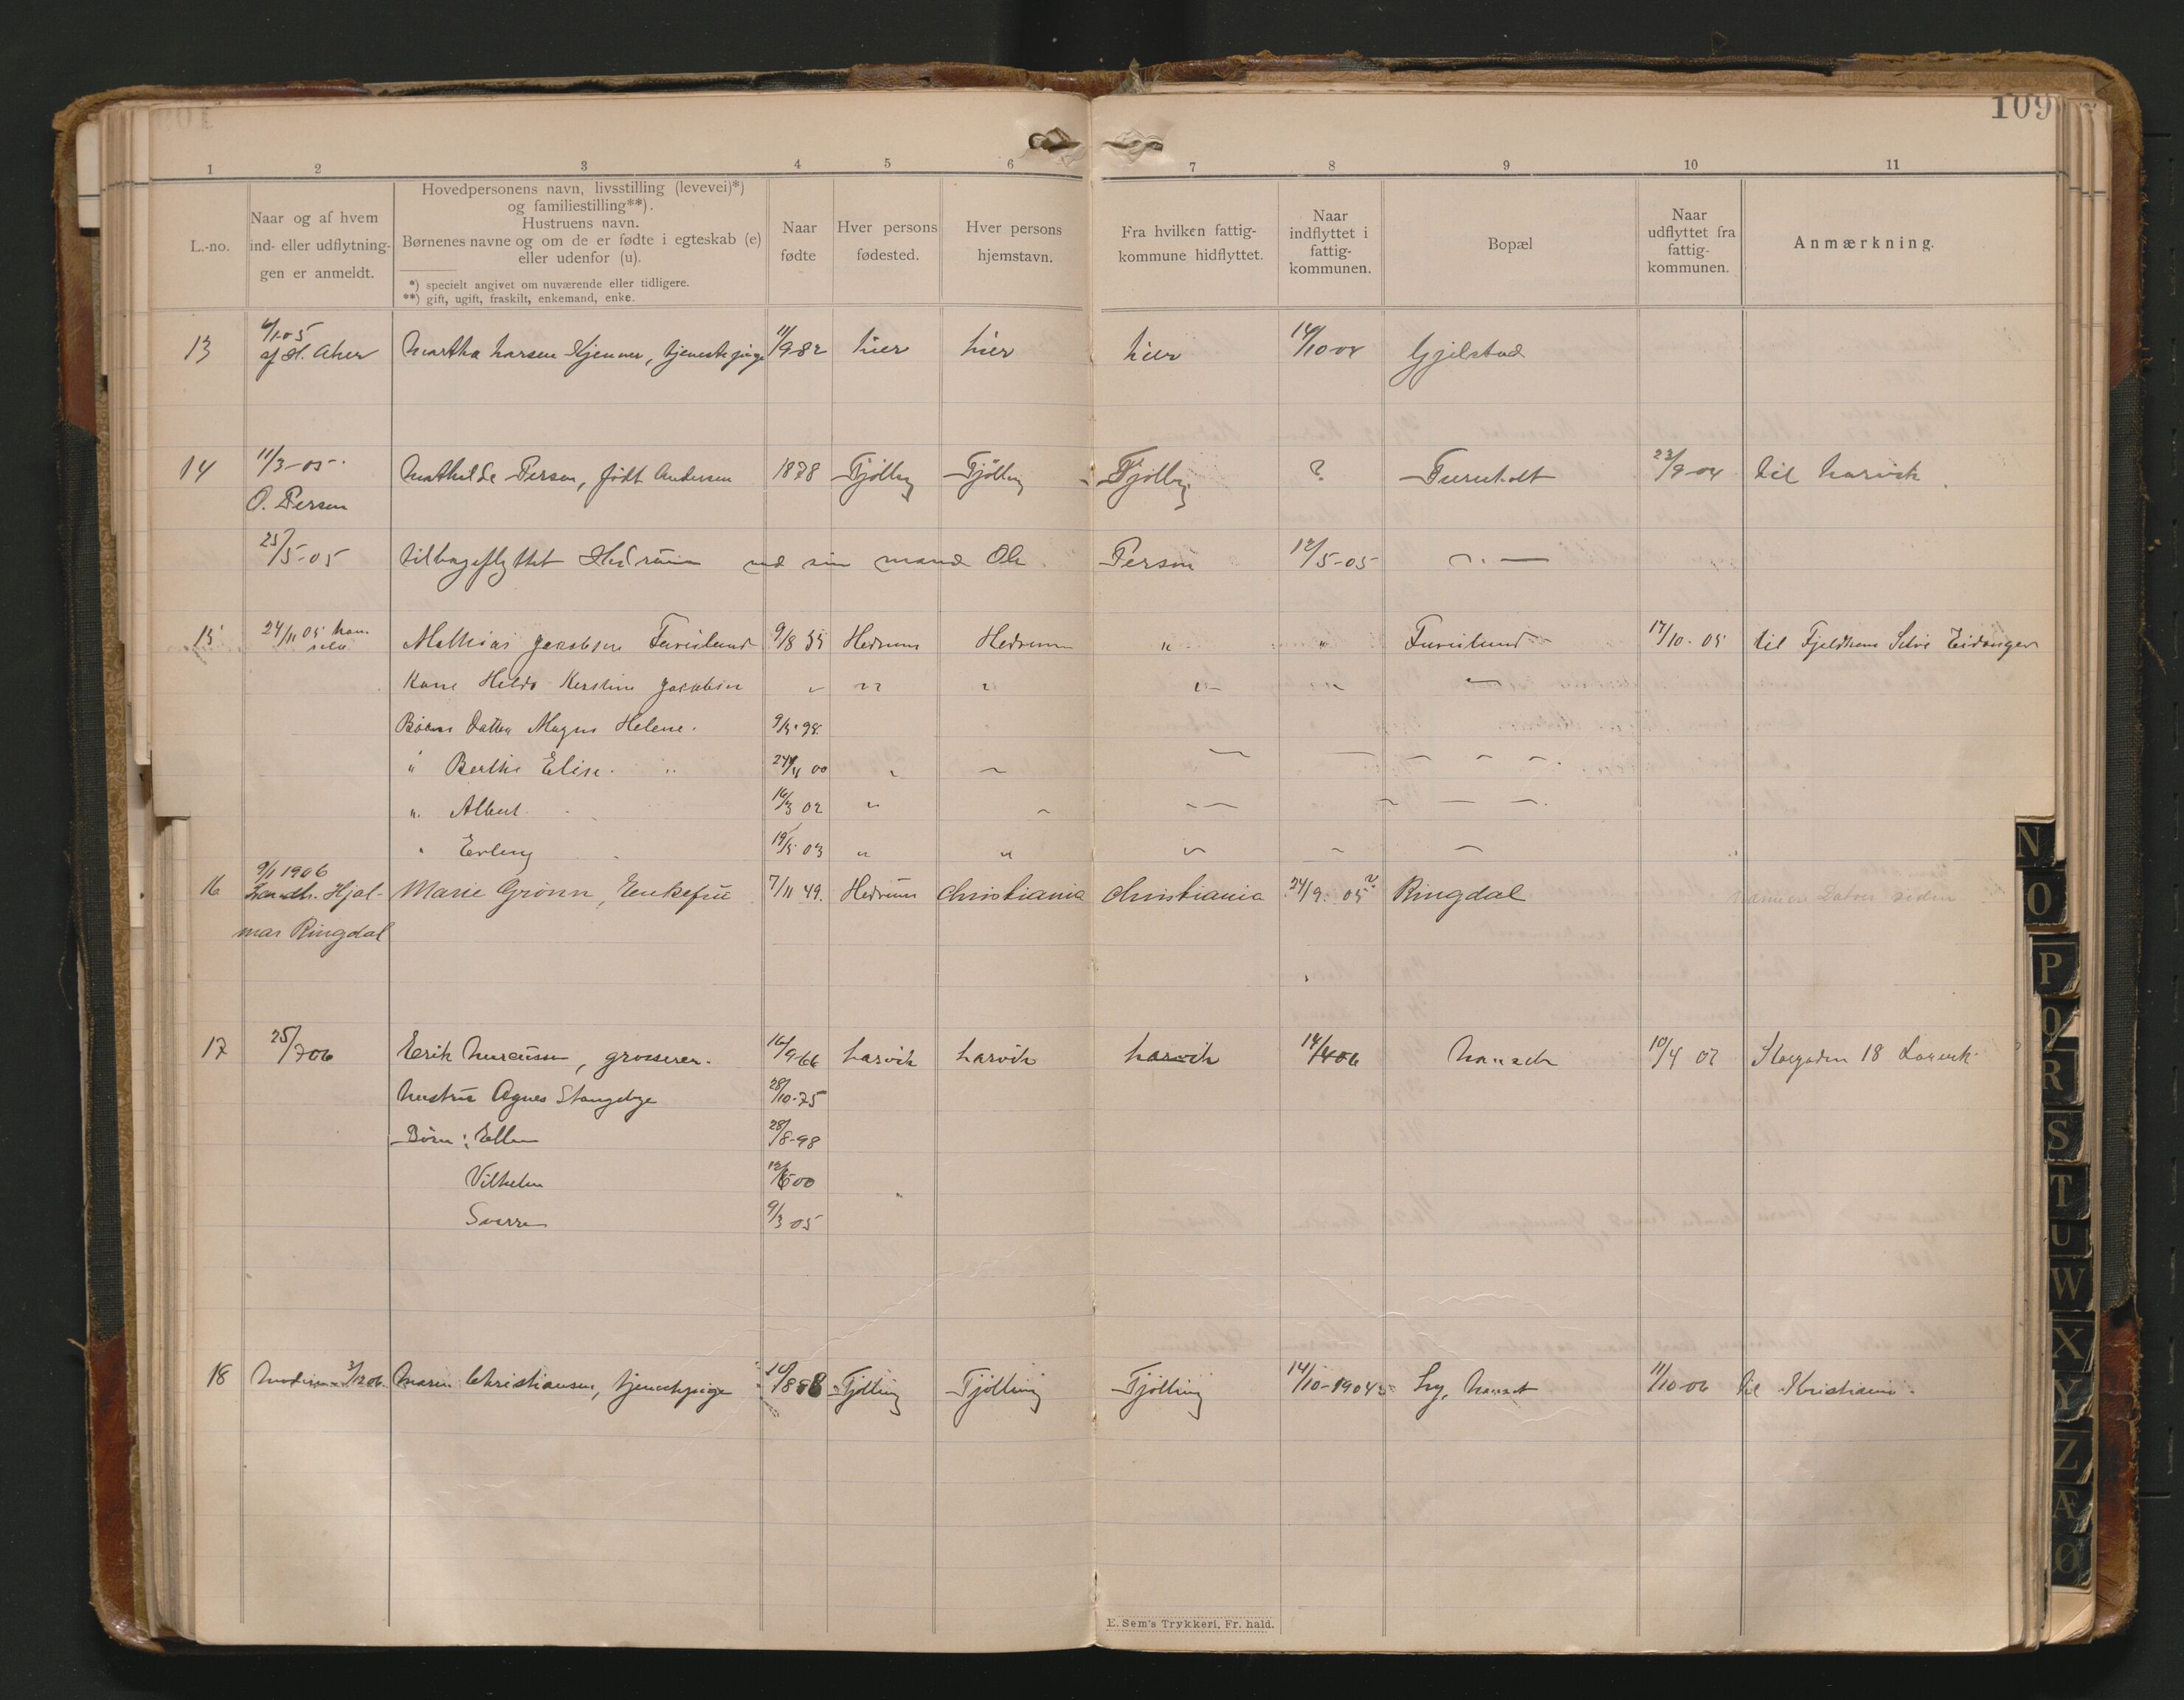 109
1 2 3 4 5 6 7 8 9 10 11
L.-no.
Naar og af hvem
ind- eller udflytnin-
gen er anmeldt.
Hovedpersonens navn, livsstilling (levevei)*)
og familiestilling**).
Hustruens navn.
Børnenes navne og om de er fødte i egteskab (e)
eller udenfor (u).
*) specielt angivet om nuværende eller tidligere.
**) gift, ugift, fraskilt, enkemand, enke.
Naar
fødte
Hver persons
fødested.
Hver persons
hjemstavn.
Fra hvilken fattig-
kommune hidflyttet.
Naar
indflyttet i
fattig-
kommunen.
Bopæl
Naar
udflyttet fra
fattig-
kommunen.
Anmærkning.
13 af H. Aker Martha Larsen Kjenner, tjenestepige 11/9-82 hier hier hier 14/10-04 Gjelstad
14 11/3-05 Mathilde Persen, født Andersen 1878 Tjølling Tjølling Tjølling ? Furuholt 23/9-04 til Larvik
O. Persen
25/5-05 tilbageflyttet Hedrum med sin mand Ole Persen 12/5-05
15 24/11 05 Mathias Jacobsen Furulund 9/8 55 Hedrum Hedrum " " Furulund 17/10-05 til Fjeldhem Eidanger
Kone Hilda Kerstine Jacobsen
Børn Datter Magne Helene. 9/5-98
" Berthe Elise. 00
" Albert 16/3 02
" Erling 19/5 03
9/1 1906
16 Hjal- Marie Grönn, Enkefru 7/11 49. Hedrum Christiania Christiania 24/9 05 ? Ringdal
mar Ringdal
17 25/7 06 Erik Marcussen, grosserer. 16/9-66 Larvik Larvik Larvik 14/4 06 Nanset 10/4 07 Storgaden 18 Larvik
Hustru Agnes Stangebye 28/10-75
Børn: Ellen 28/8-98
Vilhelm 00
Sverre 9/3 05
18 Maren Christiansen, tjenestepige Tjølling Tjølling Tjølling 14/10-1904 Ly, Nanset 11/10-06 til Kristiania.
E. Sem's Trykkeri, Fr. hald.
N
O
P
Q
R
S
T
U
W
X
Y
Z
Æ
Ø